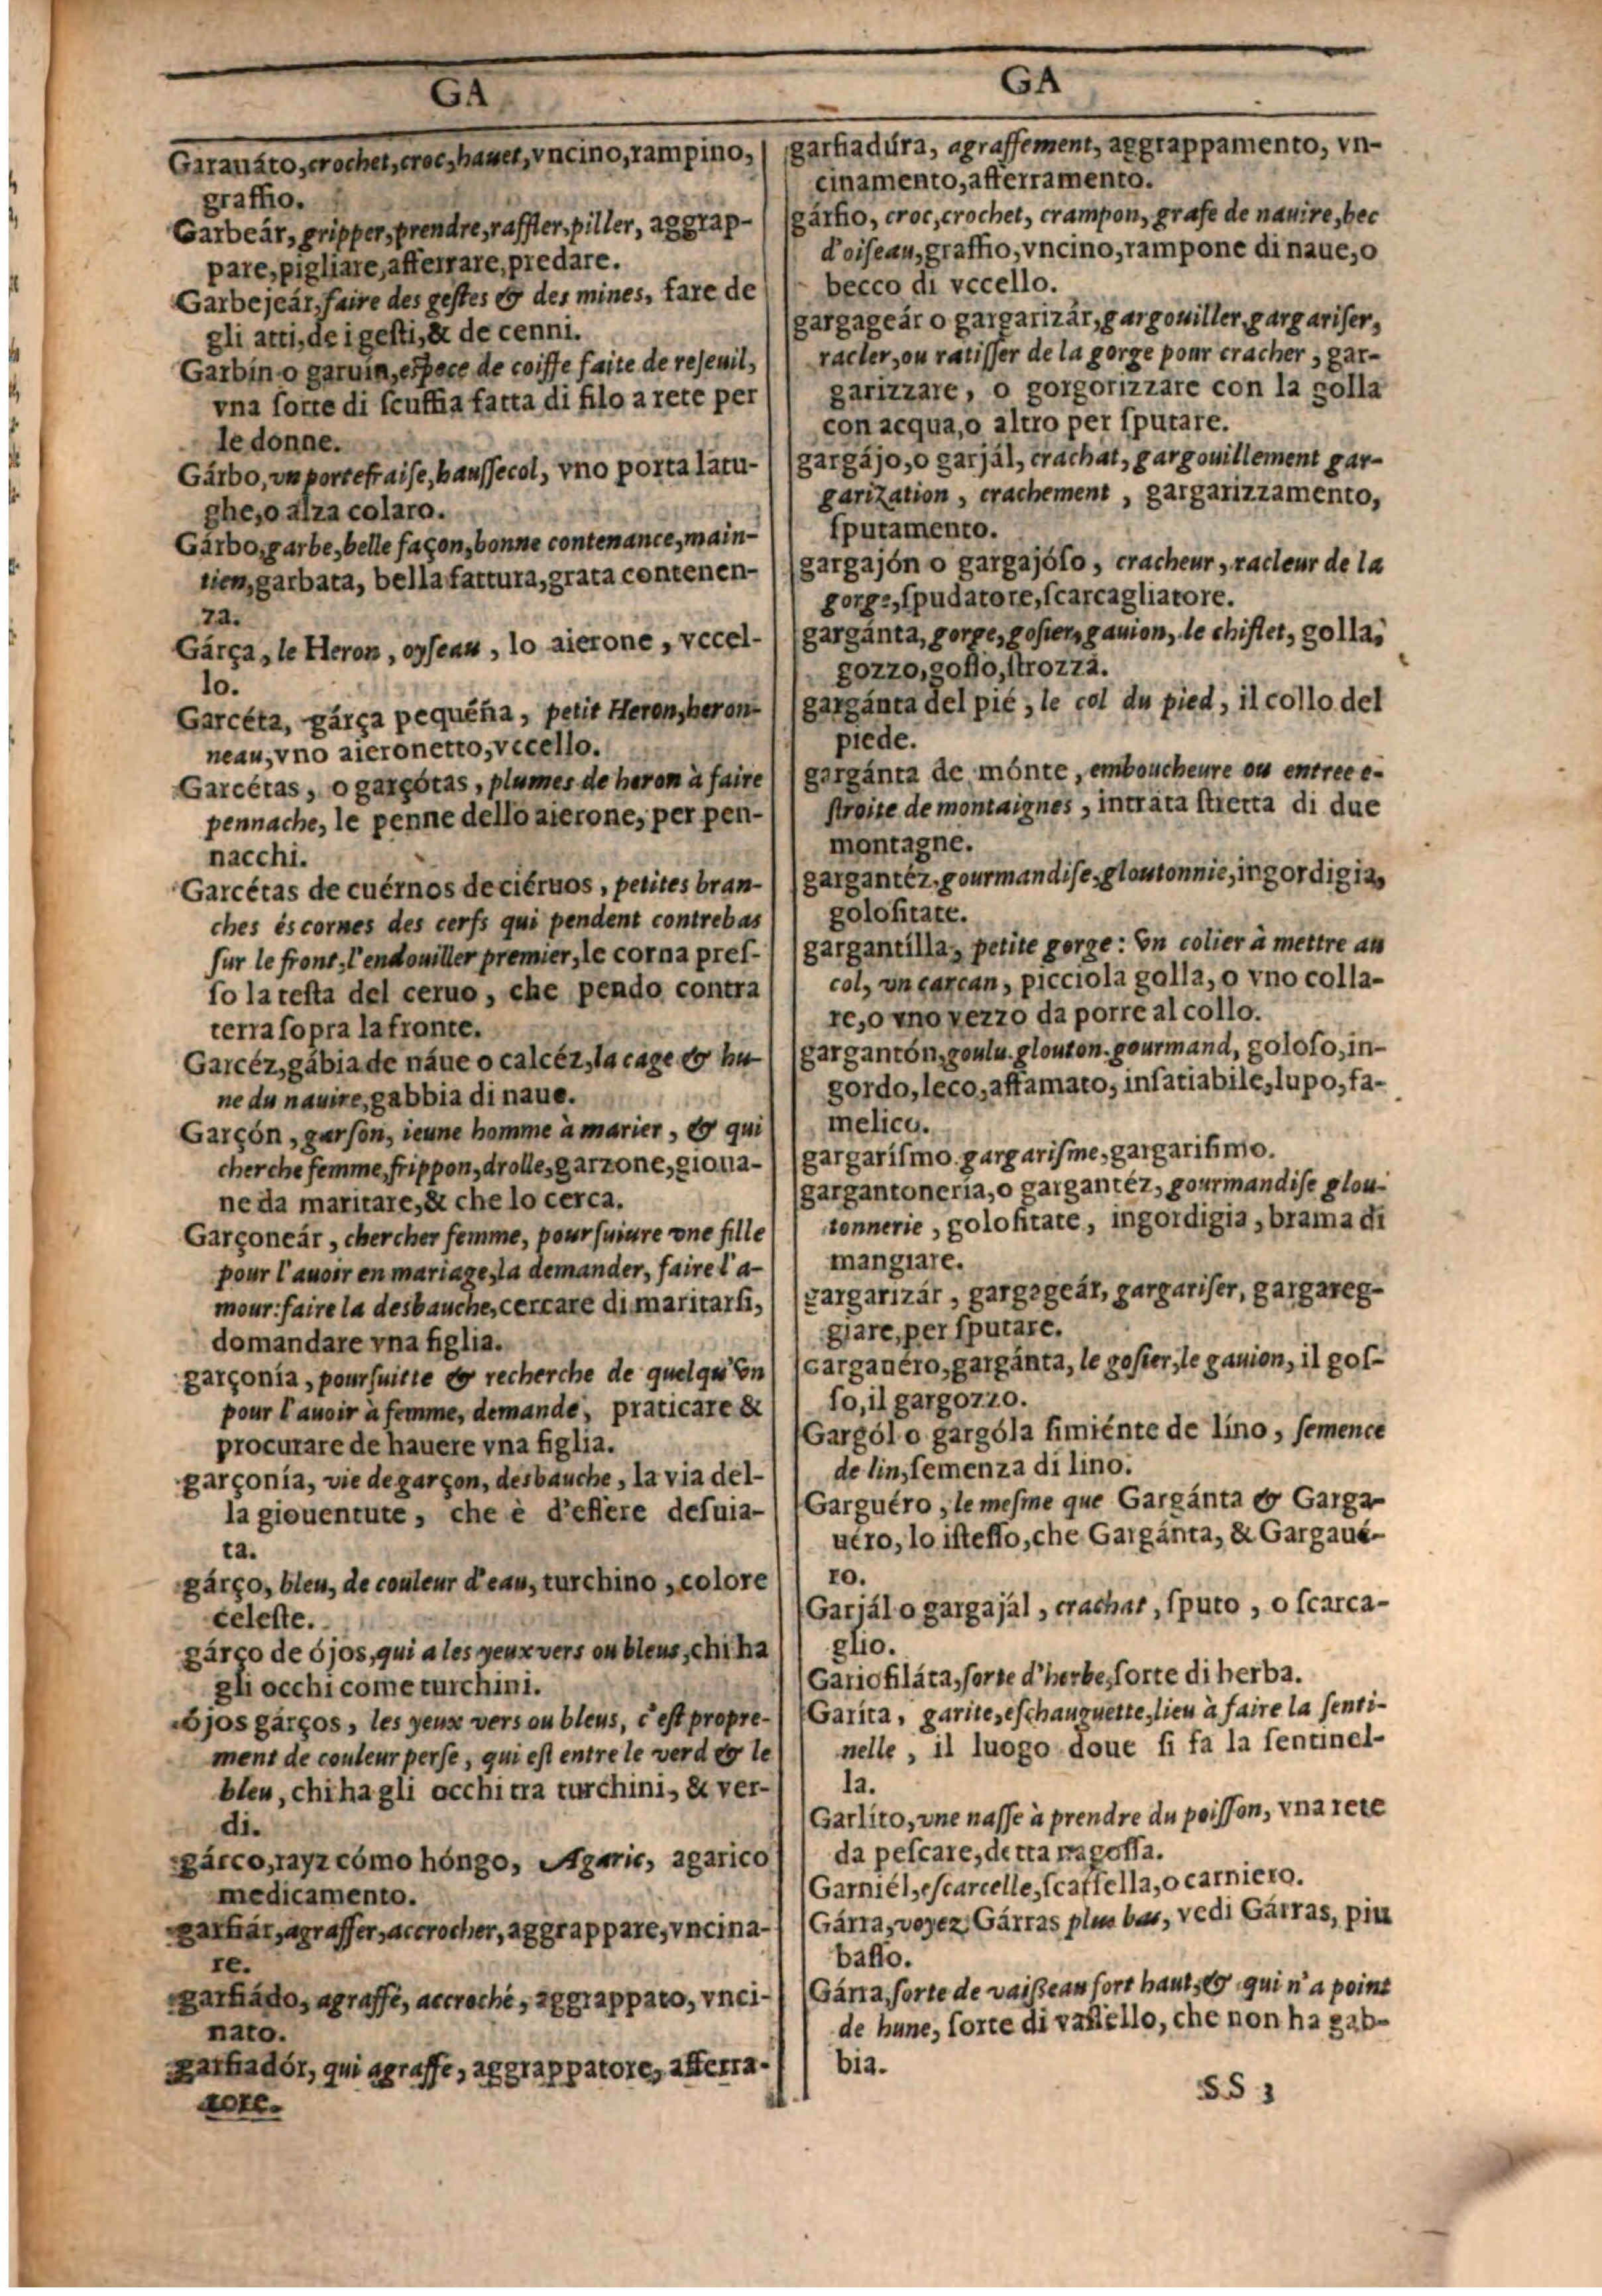 GA
Garauáto, crochet, croc, hauet, vncino, rampino,
graffio.
Garbeár, gripper, prendre, raffler, piller, aggrap-
pare, pigliare, afferrare, predare.
Garbejeár, faire des gestes & des mines, fare de
gli atti, de i gesti, & de cenni.
Garbín o garuín, espece de coiffe faite de reseuil,
vna sorte di scuffia fatta di filo a rete per
le donne.
Gárbo, vn portefraise, haussecol, vno porta latu-
ghe, o alza colaro.
Gárbo, garbe, belle façon, bonne contenance, main-
tien, garbata, bella fattura, grata contenen-
za.
Gárça, le Heron, oyseau, lo aierone, vccel-
lo.
Garcéta, gárça pequéña, petit Heron, heron-
neau, vno aieronetto, vccello.
Garcétas, o garçótas, plumes de heron à faire
pennache, le penne dello aierone, per pen-
nacchi.
Garcétas de cuérnos de ciéruos, petites bran-
ches és cornes des cerfs qui pendent contrebas
sur le front, l'endouiller premier, le corna pres-
so la testa del ceruo, che pendo contra
terra sopra la fronte.
Garcéz, gábia de náue o calcéz, la cage & hu-
ne du nauire, gabbia di naue.
Garçón, garson, ieune homme à marier, & qui
cherche femme, frippon, drolle, garzone, gioua-
ne da maritare, & che lo cerca.
Garçoneár, chercher femme, poursuiure vne fille
pour l'auoir en mariage, la demander, faire l'a-
mour: faire la desbauche, cercare di maritarsi,
domandare vna figlia.
garçonía, poursuitte & recherche de quelqu'vn
pour l'auoir à femme, demande, praticare &
procurare de hauere vna figlia.
garçonía, vie de garçon, desbauche, la via del-
la giouentute, che è d'essere desuia-
ta.
gárço, bleu, de couleur d'eau, turchino, colore
celeste.
gárço de ójos, qui a les yeux vers ou bleus, chi ha
gli occhi come turchini.
ójos gárços, les yeux vers ou bleus, c'est propre-
ment de couleur perse, qui est entre le verd & le
bleu, chi ha gli occhi tra turchini, & ver-
di.
gárco, rayz cómo hóngo, Agaric, agarico
medicamento.
garfiár, agraffer, accrocher, aggrappare, vncina-
re.
garfiádo, agraffé, accroché, aggrappato, vnci-
nato.
garfiadór, qui agraffe, aggrappatore, afferra-
tore.
GA
garfiadúra, agraffement, aggrappamento, vn-
cinamento, afferramento.
gárfio, croc, crochet, crampon, grafe de nauire, bec
d'oiseau, graffio, vncino, rampone di naue, o
becco di vccello.
gargageár o gargarizár, gargouiller, gargariser,
racler, ou ratisser de la gorge pour cracher, gar-
garizzare, o gorgorizzare con la golla
con acqua, o altro per sputare.
gargájo, o garjál, crachat, gargouillement gar-
garization, crachement, gargarizzamento,
sputamento.
gargajón o gargajóso, cracheur, racleur de la
gorge, spudatore, scarcagliatore.
gargánta, gorge, gosier, gauion, le chiflet, golla,
gozzo, gosso, strozza.
gargánta del pié, le col du pied, il collo del
piede.
gargánta de mónte, emboucheure ou entree e-
stroite de montaignes, intrata stretta di due
montagne.
gargantéz, gourmandise, gloutonnie, ingordigia,
golositate.
gargantílla, petite gorge: vn colier à mettre au
col, vn carcan, picciola golla, o vno colla-
re, o vno vezzo da porre al collo.
gargantón, goulu, glouton, gourmand, goloso, in-
gordo, leco, affamato, insatiabile, lupo, fa-
melico.
gargarísmo, gargarisme, gargarisimo.
gargantonería, o gargantéz, gourmandise glou-
tonnerie, golositate, ingordigia, brama di
mangiare.
gargarizár, gargageár, gargariser, gargareg-
giare, per sputare.
Gargauéro, gargánta, le gosier, le gauion, il gos-
so, il gargozzo.
Gargól o gargóla simiénte de líno, semence
de lin, semenza di lino.
Garguéro, le mesme que Gargánta & Garga-
uéro, lo istesso, che Gargánta, & Gargaué-
ro.
Garjál o gargajál, crachat, sputo, o scarca-
glio.
Gariofiláta, sorte d'herbe, sorte di herba.
Garíta, garite, eschauguette, lieu à faire la senti-
nelle, il luogo doue si fa la sentinel-
la.
Garlíto, vne nasse à prendre du poisson, vna rete
da pescare, detta nagossa.
Garniél, escarcelle, scarsella, o carniero.
Gárra, voyez Gárras plus bas, vedi Gárras, piu
basso.
Gárra, sorte de vaisseau fort haut, & qui n'a point
de hune, sorte di vassello, che non ha gab-
bia.
SS 3